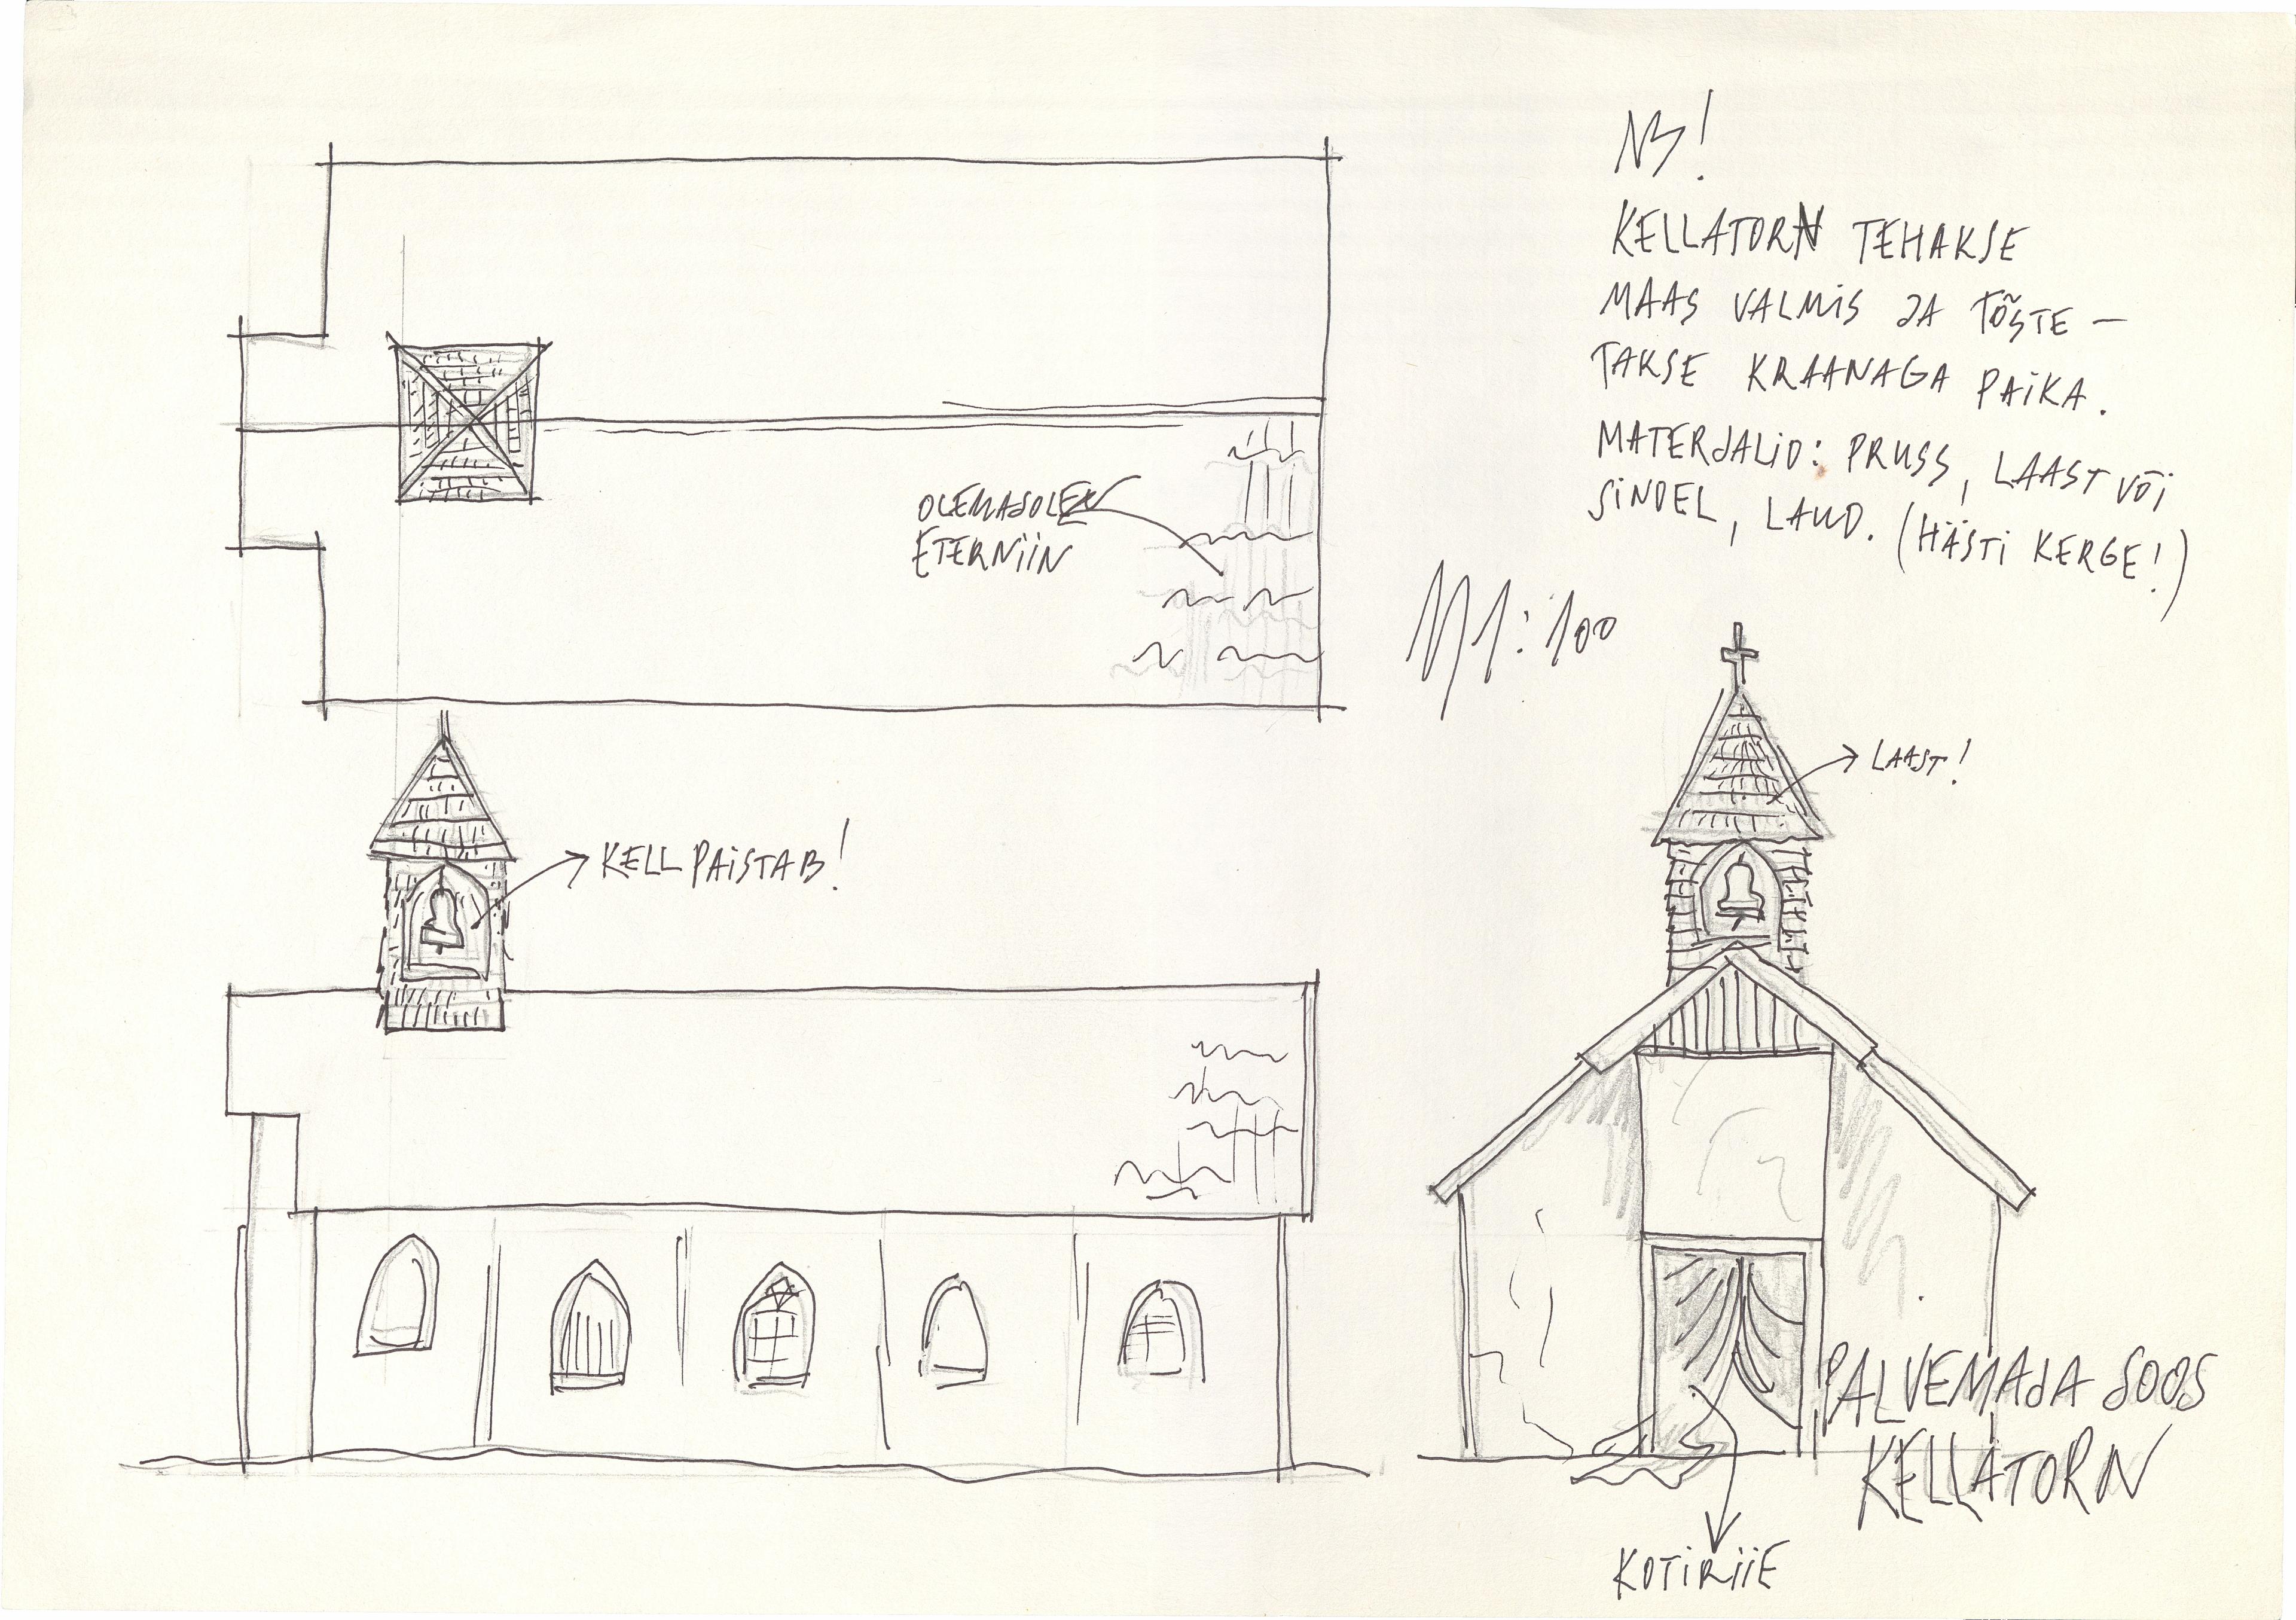 NB!
KELLATORN TEHAKSE
MAAS VALMIS JA TÕSTE-
TAKSE KRAANAGA PAIKA.
MATERJALID: PRUSS, LAAST VÕI
SINDEL, LAUD. (HÄSTI KERGE!)
OLEMASOLEV
ETERNIIN
M 1:100
LAAST!
KELL PAISTAB!
PALVEMAJA SOOS
KELLATORN
KOTIRIIE